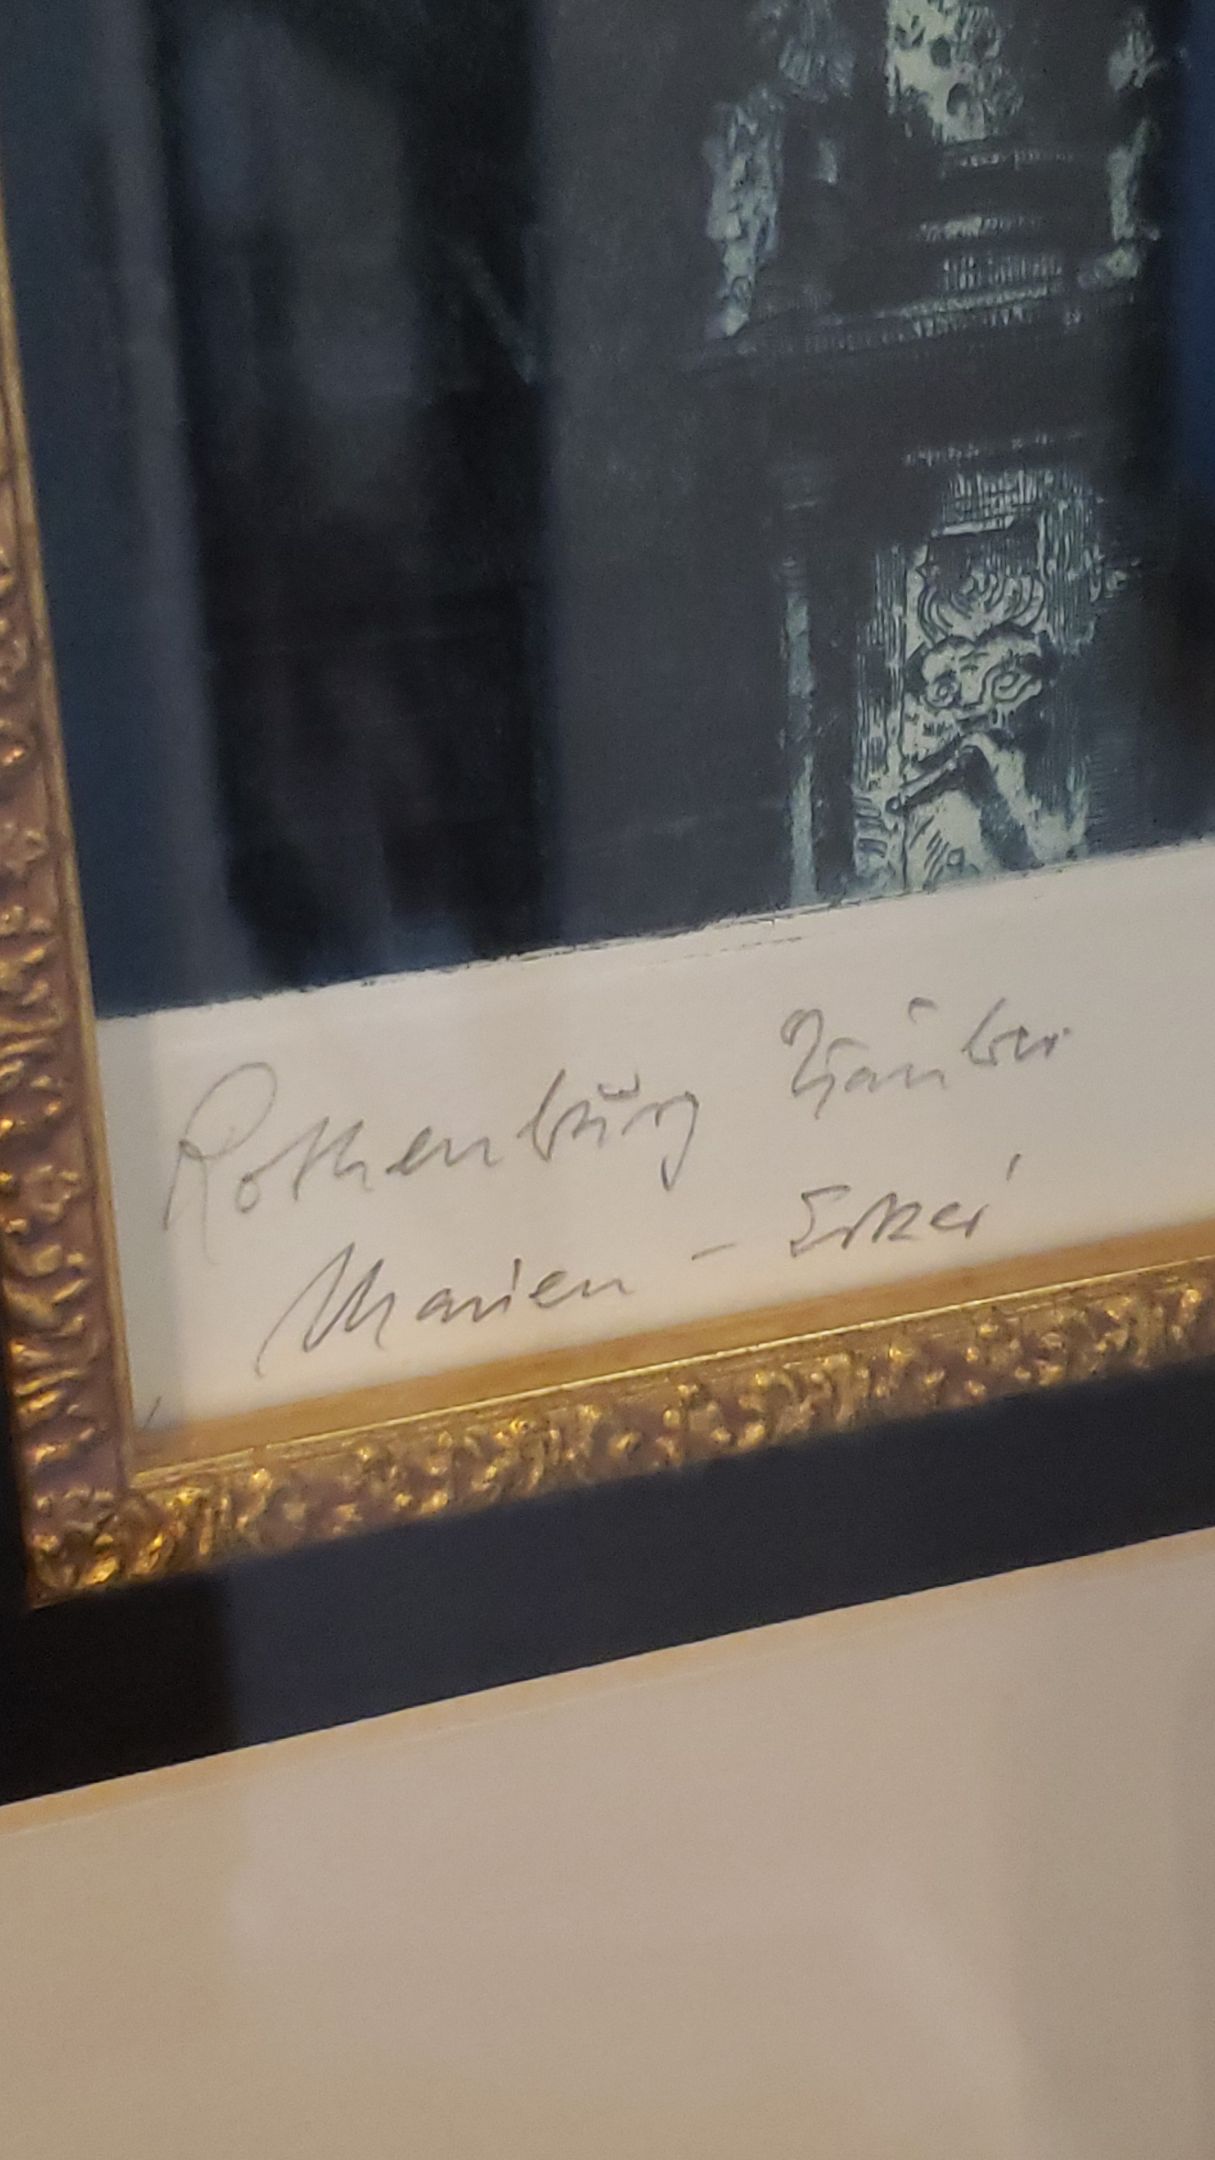 Rothenburg Tauber
Marien - Erker